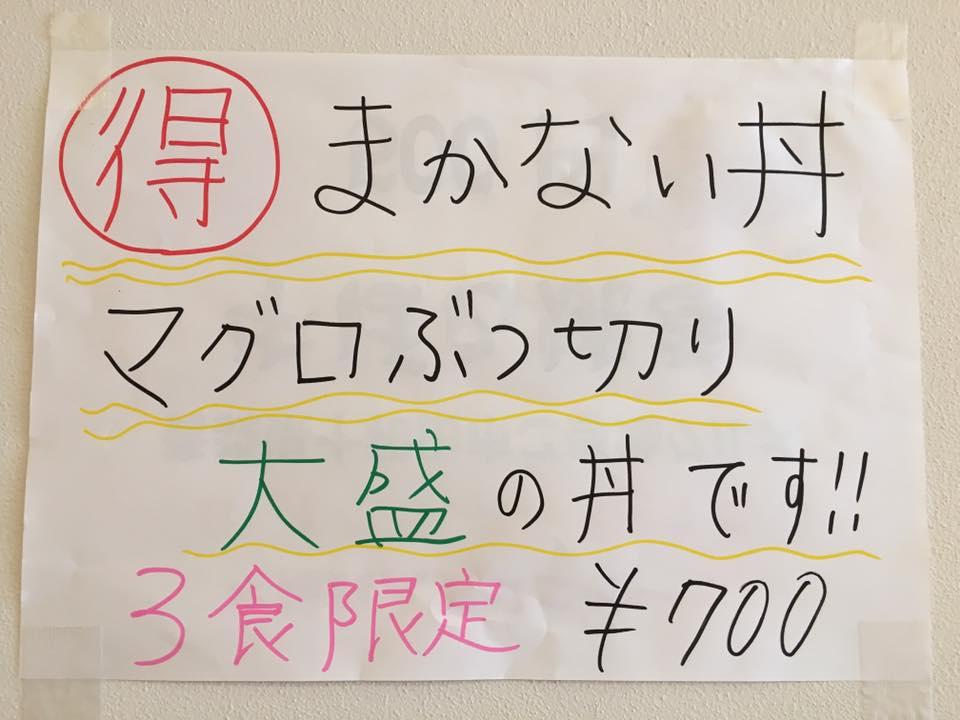 得 まかない丼
マグロぶつ切り
大盛の丼です!!
3食限定 ¥700